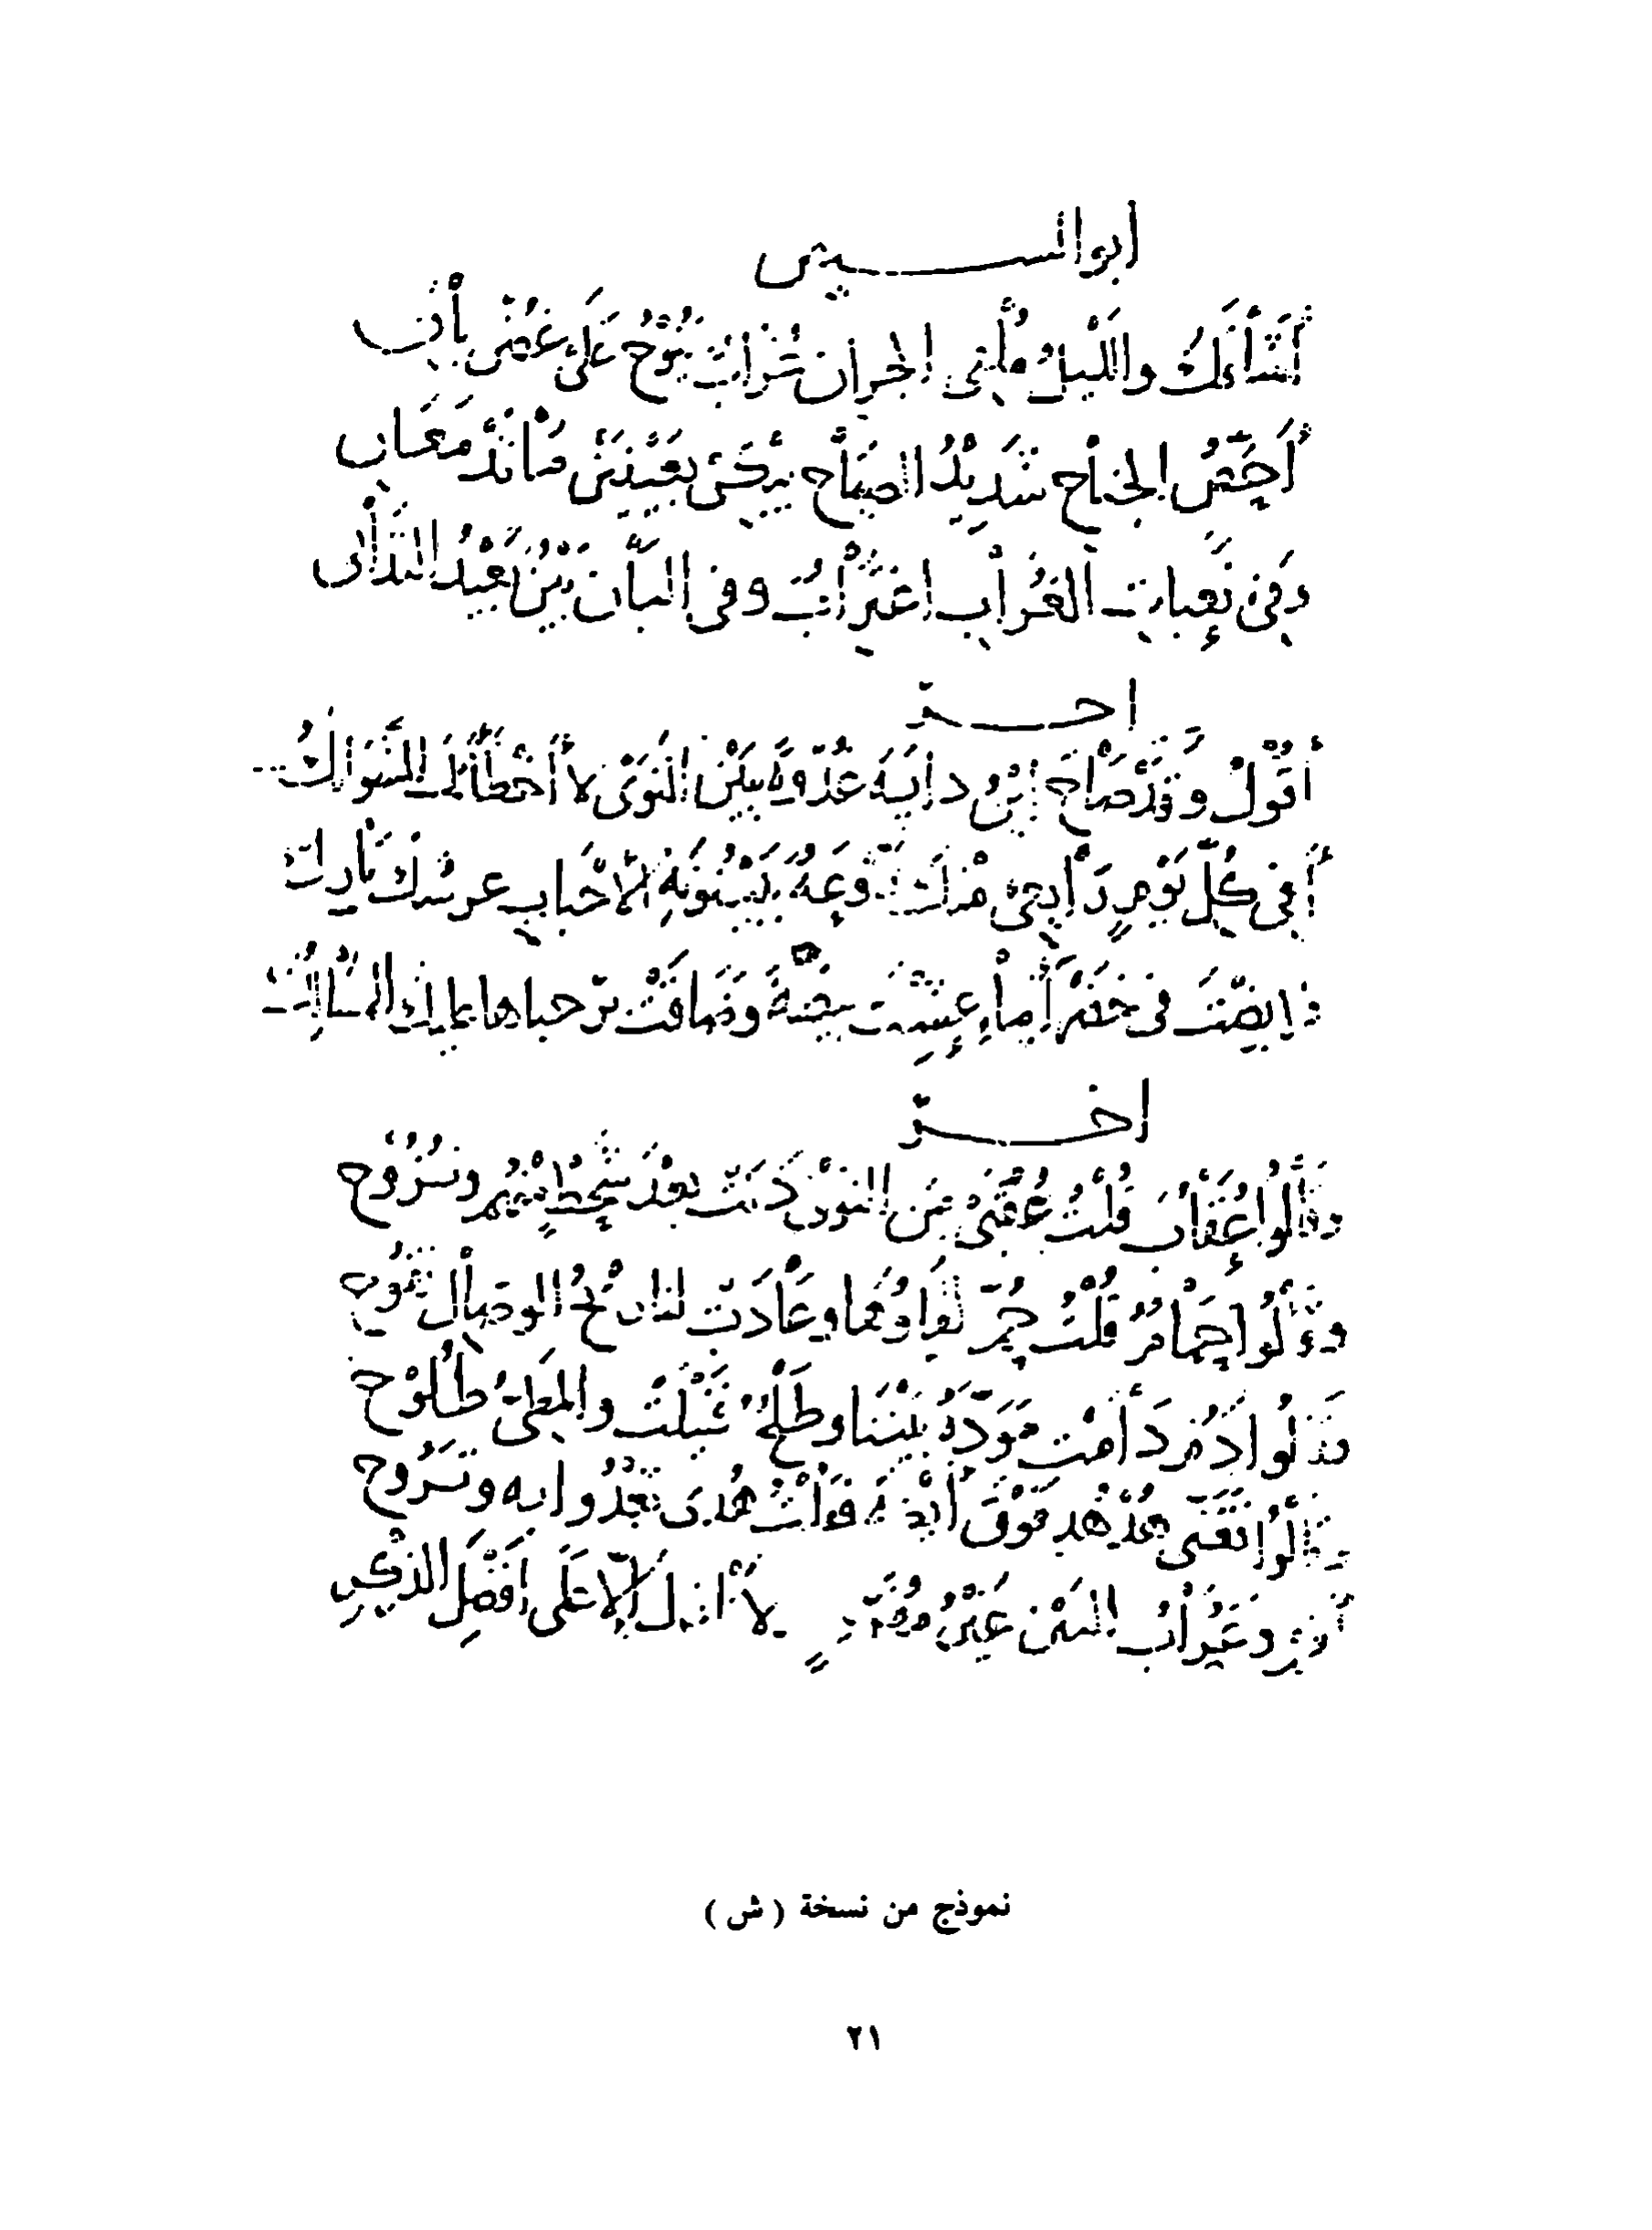 ابو الشيص
أَشَأقَكَ والَّليلُ مُلْقى الجِرانِ غُرَابٌ يَنُوحُ عَلَى غُصْنِ بَانِ
أَحَصُّ الجَناحِ شَدِيْدُ الصِيَاحِ يَبْكى بِعَيْنَيْنِ مَا تَدْمَعَانِ
وَفِى نَعِباتِ الغُرابِ اغْتِرَابٌ وَفى البَانِ بَيْنٌ بَعِيْدُ التَدانى
اخر
أقُوْلُ وَقَدْ صَاحَ ابْنُ دايَةَ غُدْوَةً بِبَيْنِ النَوَى لا أخْطَأتْكَ الشَوابكُ
أفِى كُلِّ يَوْمٍ رَائِعِى مِنْكَ رَوْعَةٌ بِبَيْنُونَةِ الأَحْبَابِ عرسُكَ فَارِكُ
فلا بِضْتَ فى خَضْرَاءَ ما عِشْتَ بَيْضَةً وَضَاقَتْ بِرحباها عليكَ المسَالِكُ
اخر
وقَالُوا عُقَابٌ قُلْتُ عُقْبَى مِنَ النوى دَنَتْ بَعْدَ شَحْطٍ مِنْهُم ونُزُوحِ
وَقَالُوا حَمَامٌ قُلْتُ حُمَّ لقاوُها وعَادَتْ لنا رِيحُ الوِصَالِ تَفُوحُ
وقالُوا دَمٌ دَامَتْ مَوَدَّةُ بَيْنِنَا وطَلْحٌ فَنِيْلَتْ والمَطِىُّ طُلُوْحُ
وقَالُوا تَغَنَّى هُدْهُد فَوْقَ أيْكَةٍ فَقُلْتُ هُدى تَغْدُوا به وتَرُوحُ
وغُرَابُ البَيْنِ غَيْرُ لا الاّ عَلَى
نموذج من نسخة ( ش )
٢١